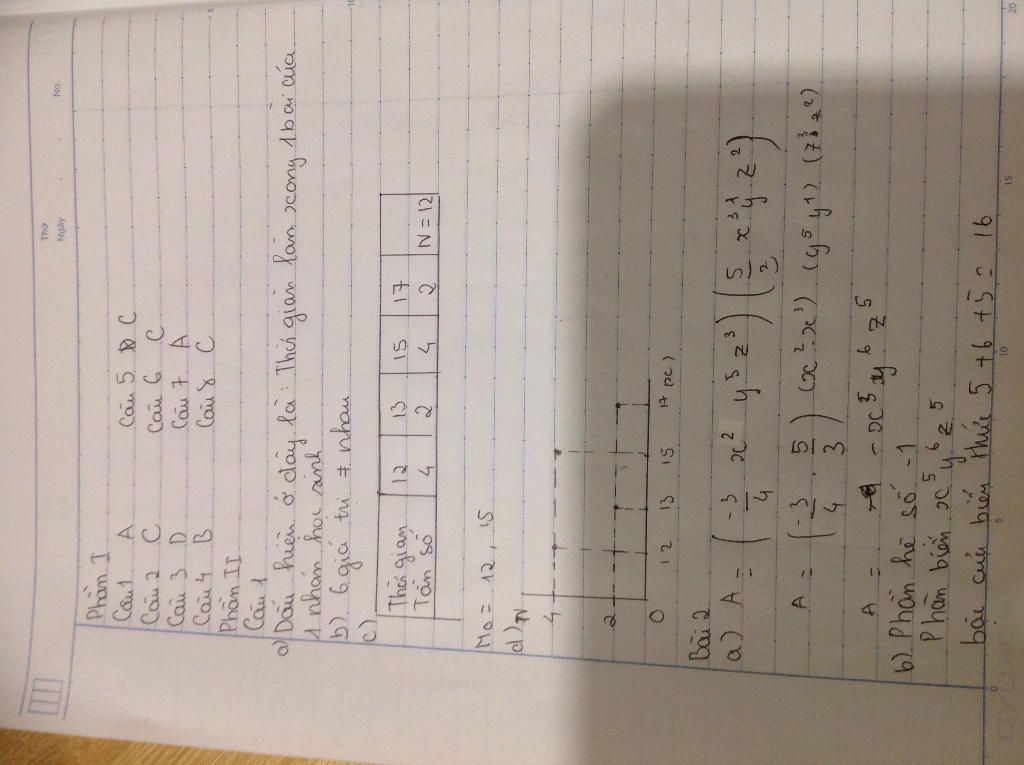 Thứ
Ngày
No.
Phần I
Câu 1 A Câu 5 C
Câu 2 C Câu 6 C
Câu 3 D Câu 7 A
Câu 4 B Câu 8 C
Phần II
Câu 1
a) Dấu hiệu ở đây là: Thời gian làm xong 1 bài của
1 nhóm học sinh
b) 6 giá trị ≠ nhau
c)
Thời gian 12 13 15 17
Tần số 4 2 4 2 N = 12
M₀ = 12, 15
d) N
4
2
0 12 13 15 17 (x)
Bài 2
a) A = (-3/4 x² y⁵ z³) (5/2 x³ y z²)
A = (-3/4 . 5/3) (x² . x³) (y⁵ y¹) (z³ z²)
A = - x⁵ y⁶ z⁵
b) Phần hệ số -1
Phần biến x⁵ y⁶ z⁵
bậc của biến thức 5 + 6 + 5 = 16
5
10
15
20